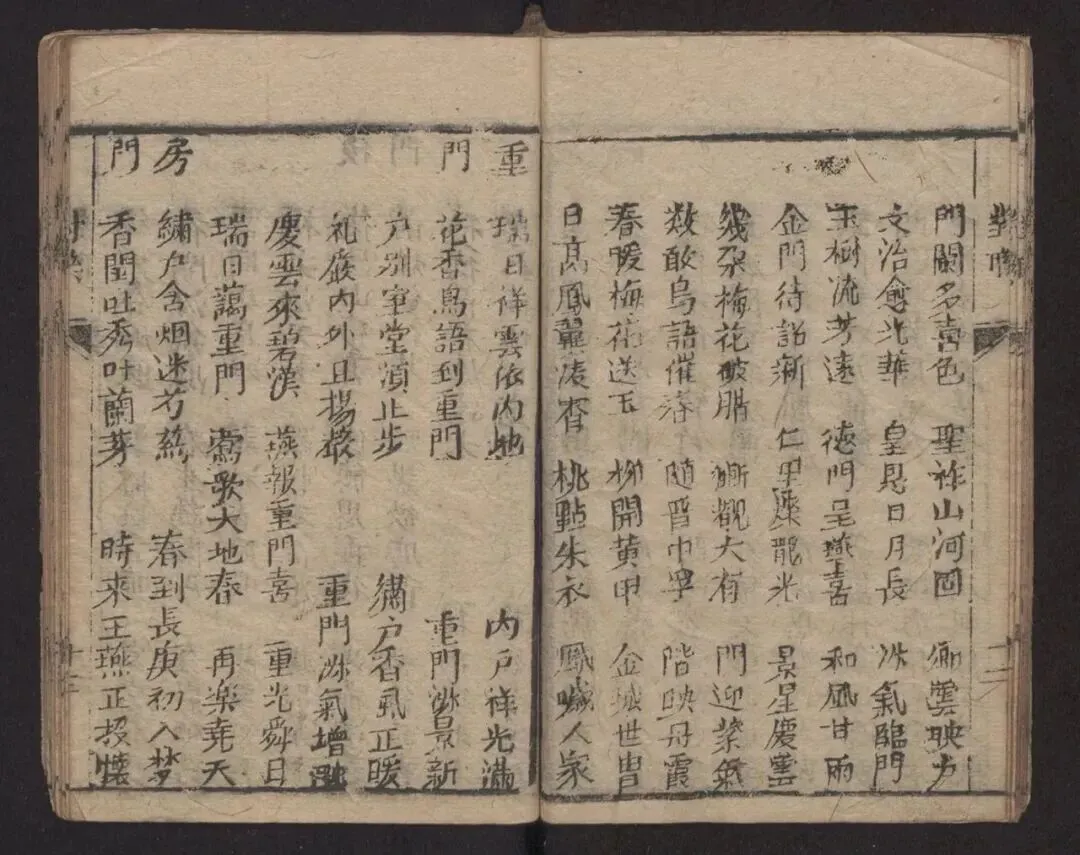 門闌多喜色 聖祚山河固 卿雲映方
文治愈光華 皇恩日月長 淑氣臨門
玉樹流芳遠 德門呈燕喜 和風甘雨
金門待詔新 仁里 龍光 景星慶雲
幾朶梅花破臘 漸觀大有 門迎紫氣
数敢鸟語催春 随晋中孚 階映丹霞
春暖梅花送玉 柳開黄甲 金城世胄
日高鳳翼凌霄 桃點朱衣 鳳 人家
重
瑞日祥雲依内地 内户祥光滿
門
花香鳥語到重門 重門淑景新
户别室堂湏止步 綉户香風正暖
礼嚴内外且揚聲 重門淑氣增融
慶雲來碧漢 燕報重門喜 重光舜日
瑞日藹重門 鶯歌大地春 再樂堯天
房
繡户含烟迷 春到長庚初入梦
門
香閨吐秀叶蘭芽 時來玉燕正投懷
十二
十三